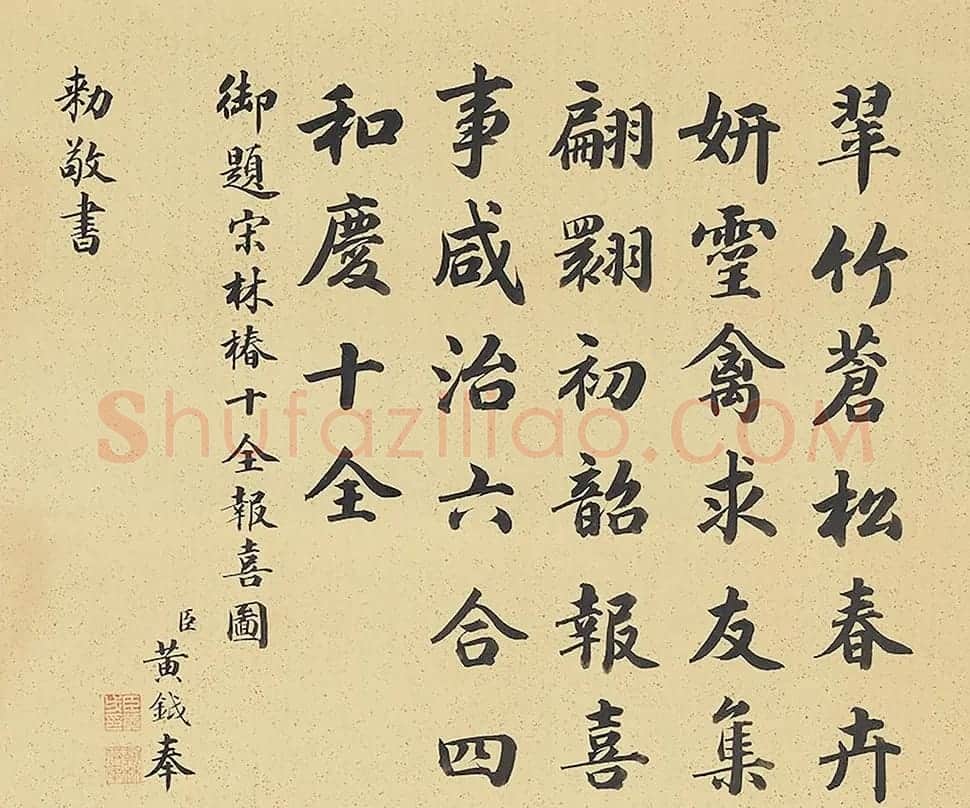 翠竹蒼松春卉
妍靈禽求友集
翩翾初韶報喜
事咸治六合四
和慶十全
御題宋林椿十全報喜圖
臣黃鉞奉
勅敬書
Shufaziliao.COM